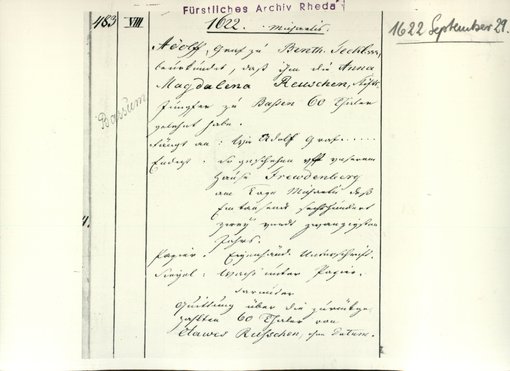 Fürstliches Archiv Rheda
483 VIII.
1622. Michaelis.
1622 September 29.
Adolf, Graf zu Benth. Tecklbg,
beurkundet, daß ihm die Anna
Magdalena Reuschen,
Jungfer zu Bassen 60 Thaler
gelehnt habe.
Bassum
Fängt an: Wir Adolf Grafe .....
Endegt: So geschehen uff unserem
Hause Frewdenberg
am Tage Michaelis deß
Eintausend sechshundert
zwey undt zwanzigsten
Jahrs.
Papier. Eigenhänd. Unterschrift.
Siegel: Wachs unter Papier.
Darunter
Quittung über die zurückge-
zahlten 60 Thaler von
Clawes Reuschen, ohne Datum.